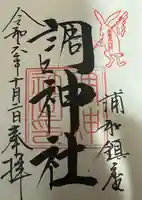 浦和鎮座
調神社
令和六年十月二日奉拝